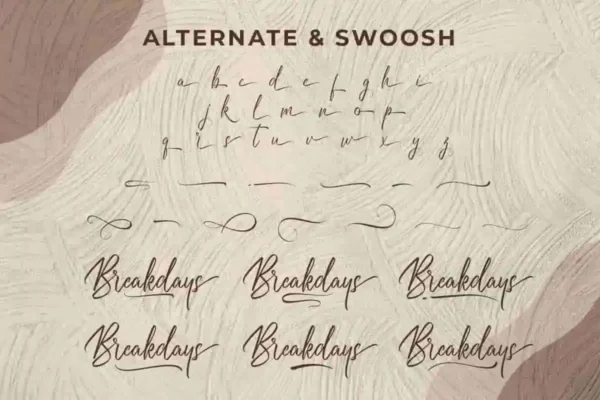 ALTERNATE & SWOOSH
a b c d e f g h i
j k l m n o p
q r s t u v w x y z
Breakdays Breakdays Breakdays
Breakdays Breakdays Breakdays